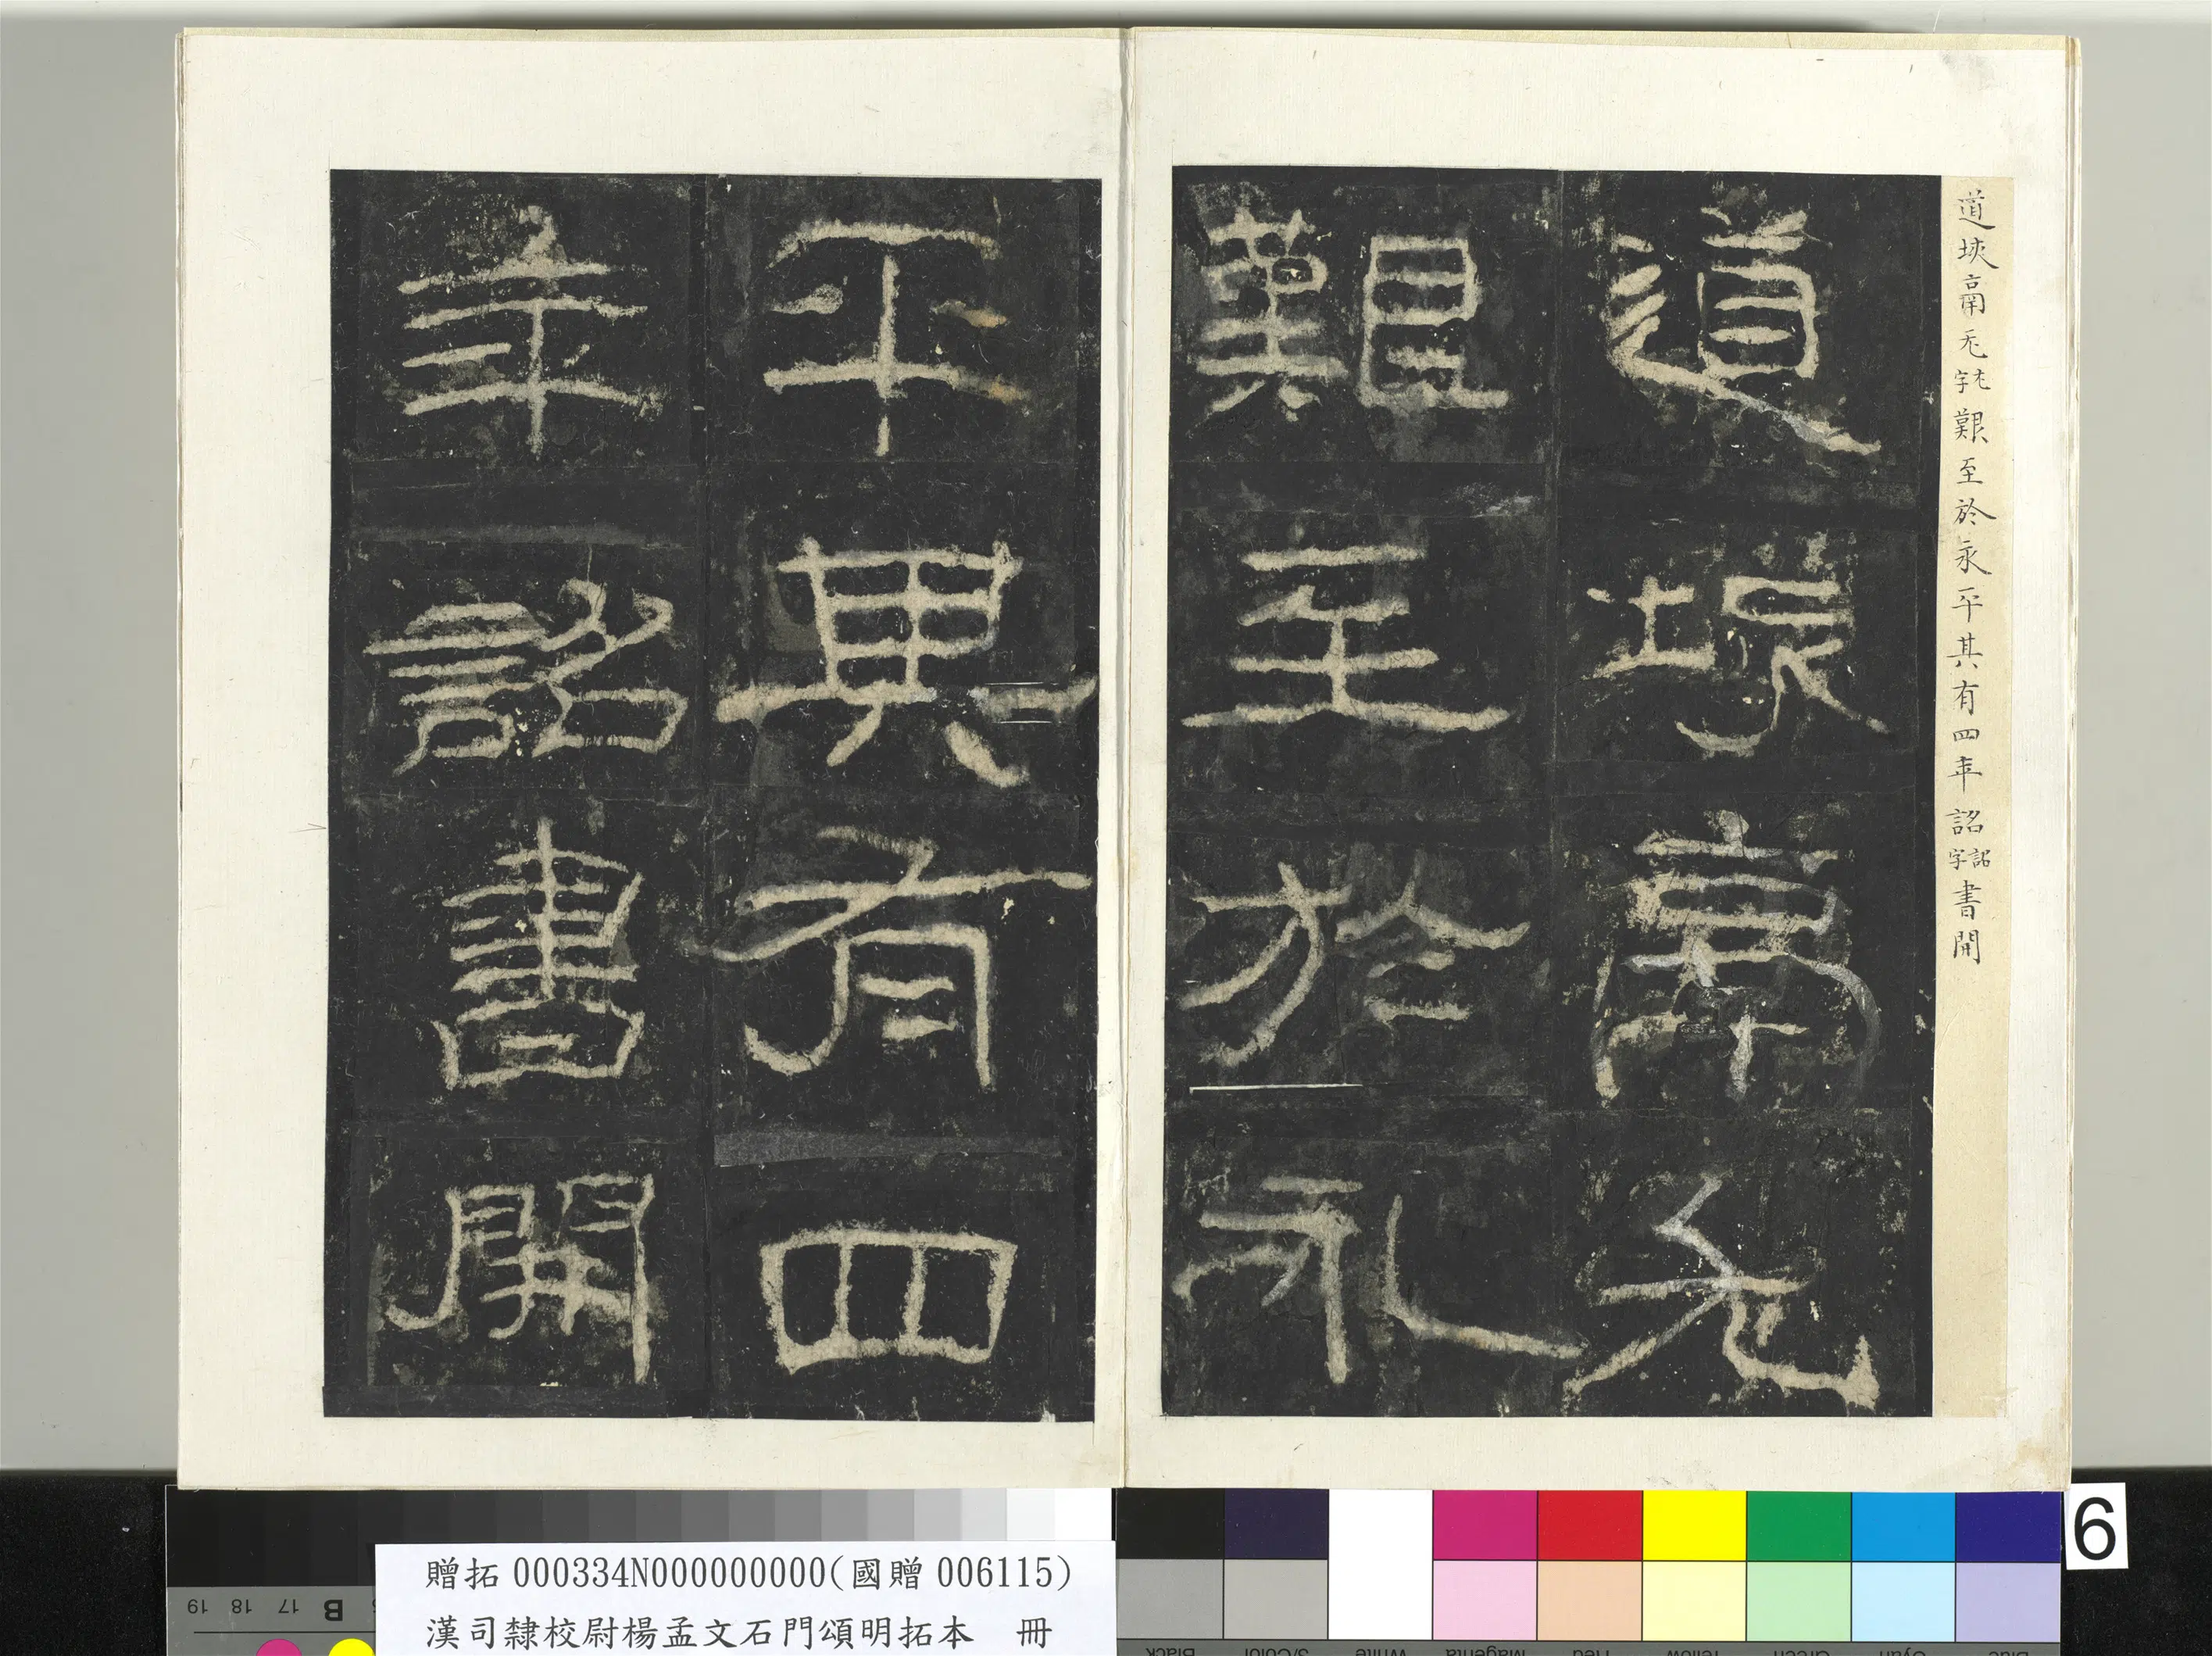 道埉鬲尤尤字艱至於永平其有四年詔詔字書開
道埉鬲尤
艱至於永
平其有四
年詔書開
贈拓000334N000000000(國贈006115)
漢司隸校尉楊孟文石門頌明拓本 冊
6
19 18 17 B
Black 3/Color White Magenta Red Yellow Green Cyan Blue